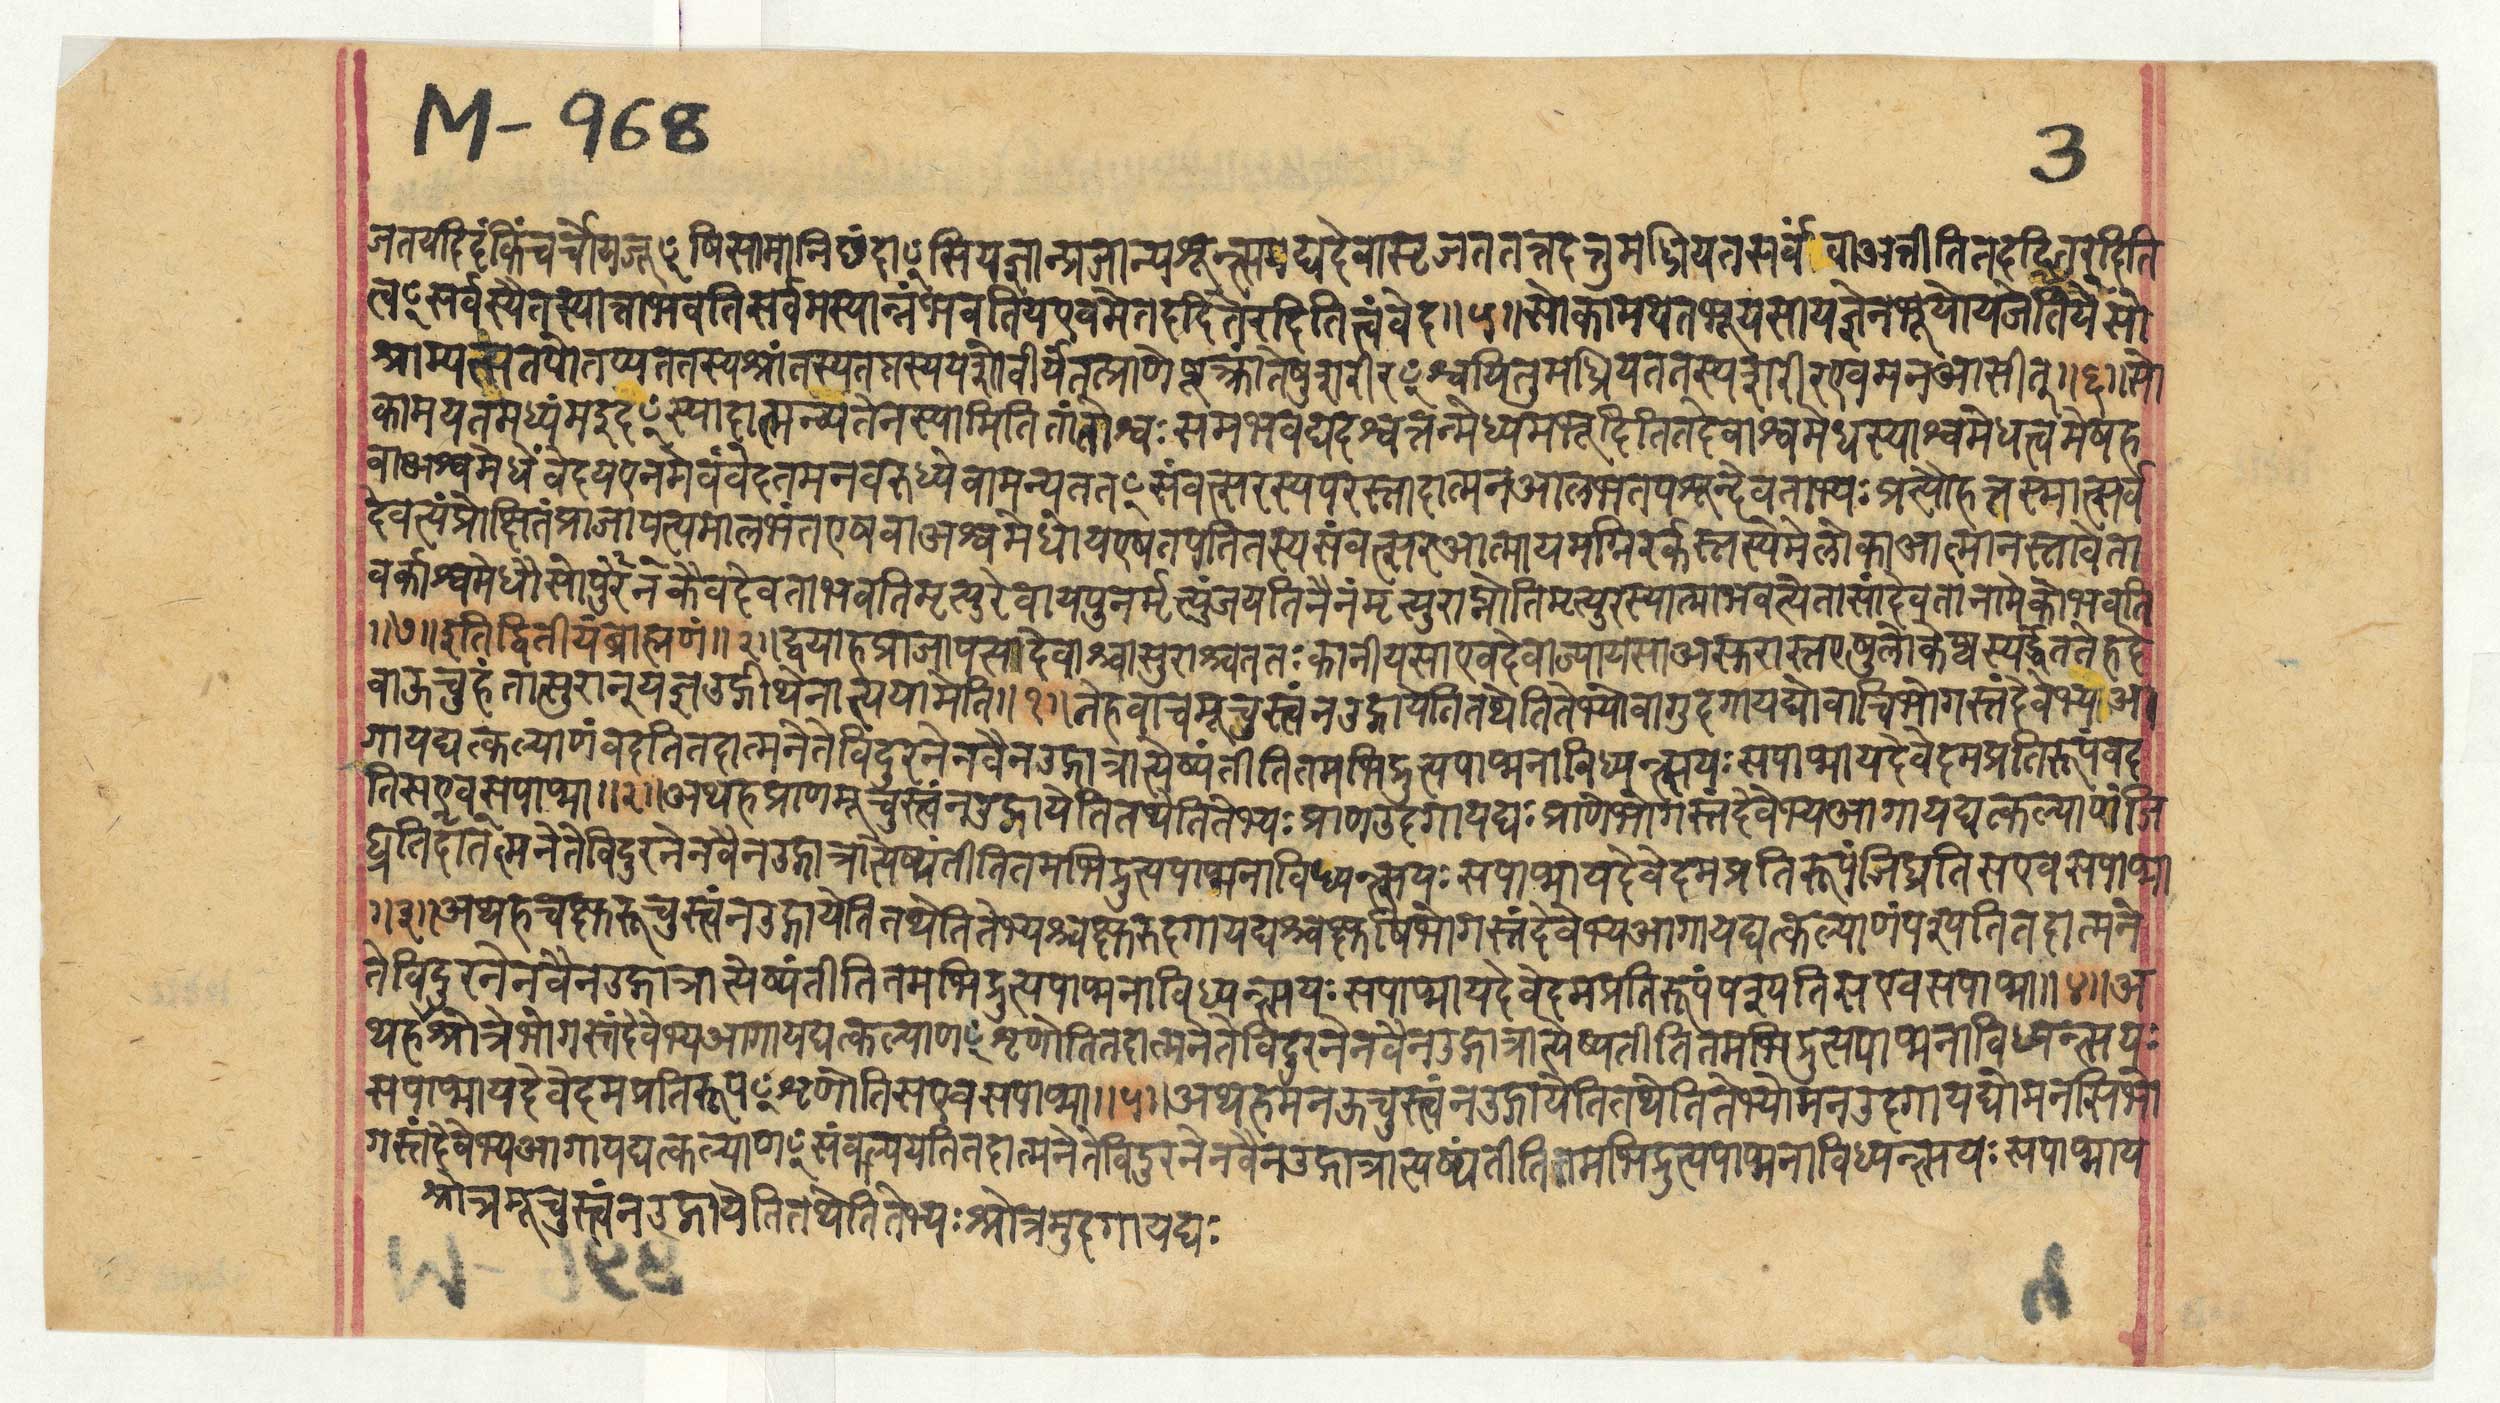 M-968
3
जतयदिदंकिंचर्चोयजूꣳषिसामानिछंदाꣳसियज्ञान्प्रजान्पशून्त्सयद्यदेवासृजततत्तदत्तुमध्रियतसर्वं वाअत्तीतितददितेरदिति
त्वꣳसर्वस्यैतस्यात्ताभवतिसर्वमस्यान्नंभवतियएवमेतददितेरदितित्वंवेद॥५॥सोकामयतभूयसायज्ञेनभूयोयजेतियेसो
श्राम्यत्सतपोतप्यततस्यश्रांतस्यतप्तस्ययशोवीर्यतत्प्राणेषूत्क्रांतेषुशरीरꣳश्वयितुमध्रियततस्यशरीरएवमनआसीत्॥६॥सो
कामयतमेध्यंमइदꣳस्यादात्मन्व्यतेनस्यामितितातोश्वःसमभवद्यदश्वत्तन्मेध्यमभूदितितदेवाश्वमेधस्याश्वमेधत्वमेषह
वाअश्वमेधंवेदयएनमेवंवेदतमनवरुध्येवामन्यततꣳसंवत्सरस्यपरस्तादात्मनआलभतपशून्देवताभ्यःप्रत्यौहत्तस्मात्सर्व
देवत्यंप्रोक्षितंप्राजापत्यमालभंतएषवाअश्वमेधोयएषतपतितस्यसंवत्सरआत्मायमग्निरर्कस्तस्येमेलोकाआत्मानस्तावेता
वर्काश्वमेधौसोपुरनेकैवदेवताभवतिमृत्युरेवापपुनर्मृत्युंजयतिनैनंमृत्युराप्नोतिमृत्युरस्यात्माभवत्येतासांदेवतानामेकोभवति
॥७॥इतिद्वितीयंब्राह्मणं॥२॥द्वयाहप्राजापत्सादेवाश्चासुराश्चततःकानीयसाएवदेवाज्यायसाअसुरास्तएषुलोकेष्वस्पर्द्धंततेहदे
वाऊचुर्हंतासुरान्यज्ञउद्गीथेनात्ययामेति॥१॥तेहवाचमूचुस्त्वंनउद्गायेतितथेतितेभ्योवागुदगायद्योवाचिभोगस्तंदेवेभ्यआ
गायद्यत्कल्याणंवदतितदात्मनेतेविदुरनेनवैनउद्गात्रात्येष्यंतीतितमभिद्रुत्यपाप्मनाविध्यन्त्सयःसपाप्मायदेवेदमप्रतिरूपंवद
तिसएवसपाप्मा॥२॥अथहप्राणमूचुस्त्वंनउद्गायेतितथेतितेभ्यःप्राणउदगायद्यःप्राणेभोगस्तंदेवेभ्यआगायद्यत्कल्याणंजि
घ्रतितदात्मनेतेविदुरनेनवैनउद्गात्रात्येष्यंतीतितमभिद्रुत्यपाप्मनाविध्यन्त्सयःसपाप्मायदेवेदमप्रतिरूपंजिघ्रतिसएवसपाप्मा
॥३॥अथहचक्षुरूचुस्त्वंनउद्गायेतितथेतितेभ्यश्चक्षुरुदगायद्यश्चक्षुषिभोगस्तंदेवेभ्यआगायद्यत्कल्याणंपश्यतितदात्मने
तेविदुरनेनवैनउद्गात्रात्येष्यंतीतितमभिद्रुत्यपाप्मनाविध्यन्त्सयःसपाप्मायदेवेदमप्रतिरूपंपश्यतिसएवसपाप्मा॥४॥अ
थहश्रोत्रेभोगस्तंदेवेभ्यआगायद्यत्कल्याणꣳशृणोतितदात्मनेतेविदुरनेनवैनउद्गात्रात्येष्यंतीतितमभिद्रुत्यपाप्मनाविध्यन्त्सयः
सपाप्मायदेवेदमप्रतिरूपꣳशृणोतिसएवसपाप्मा॥५॥अथहमनऊचुस्त्वंनउद्गायेतितथेतितेभ्योमनउदगायद्योमनसिभो
गस्तंदेवेभ्यआगायद्यत्कल्याणꣳसंकल्पयेतितदात्मनेतेविदुरनेनवैनउद्गात्रात्येष्यंतीतितमभिद्रुत्यपाप्मनाविध्यन्त्सयःसपाप्माय
श्रोत्रमूचुस्त्वंनउद्गायेतितथेतितेभ्यःश्रोत्रमुदगायद्यः